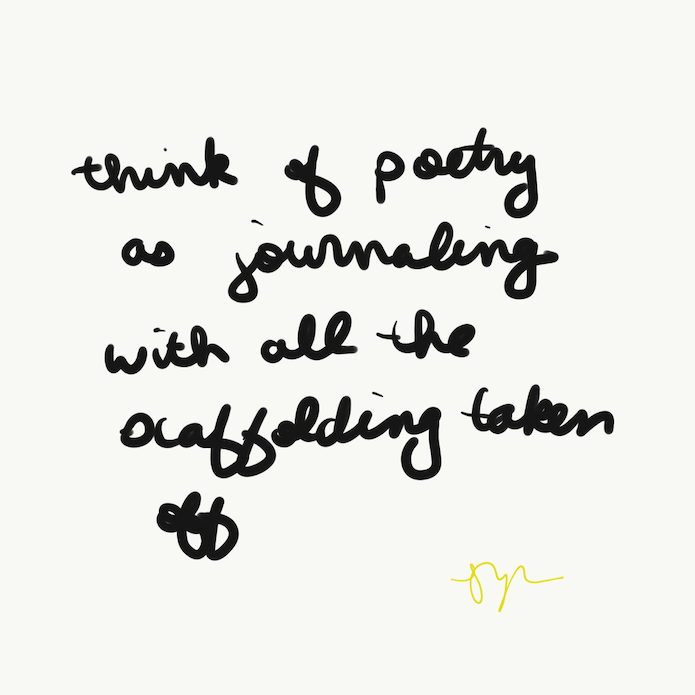 think of poetry
as journaling
with all the
scaffolding taken
off